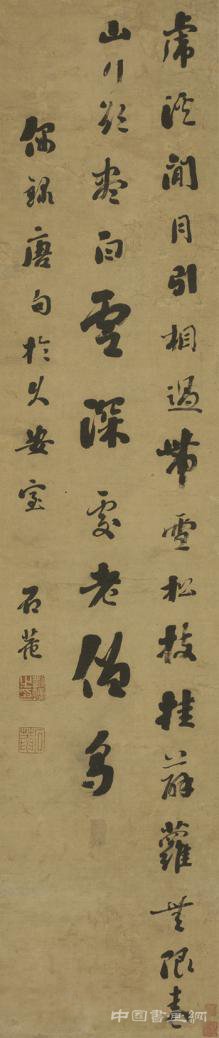 虎溪閒月引相過帶雪松枝挂薜蘿無限青
山行欲盡白雲深處老僧多
偶録唐句於久安室
石菴